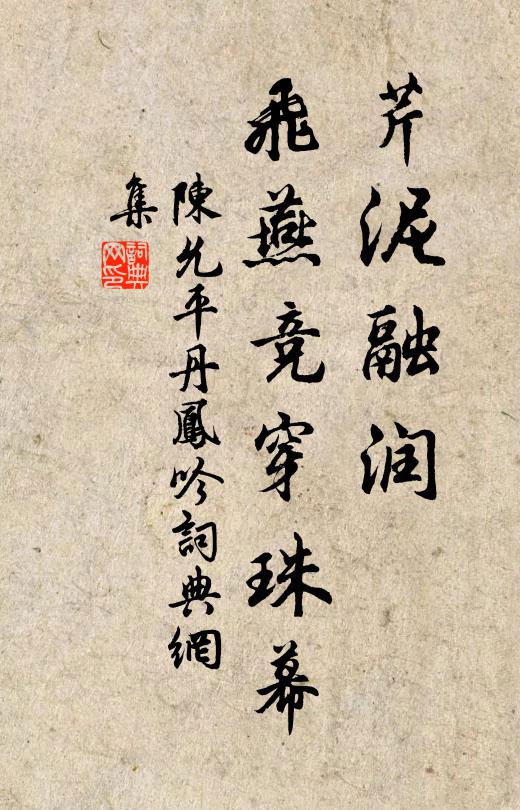 芹泥融润
飛燕竞穿珠幕
陳允平丹鳳吟詞典網
集
詞典
网印